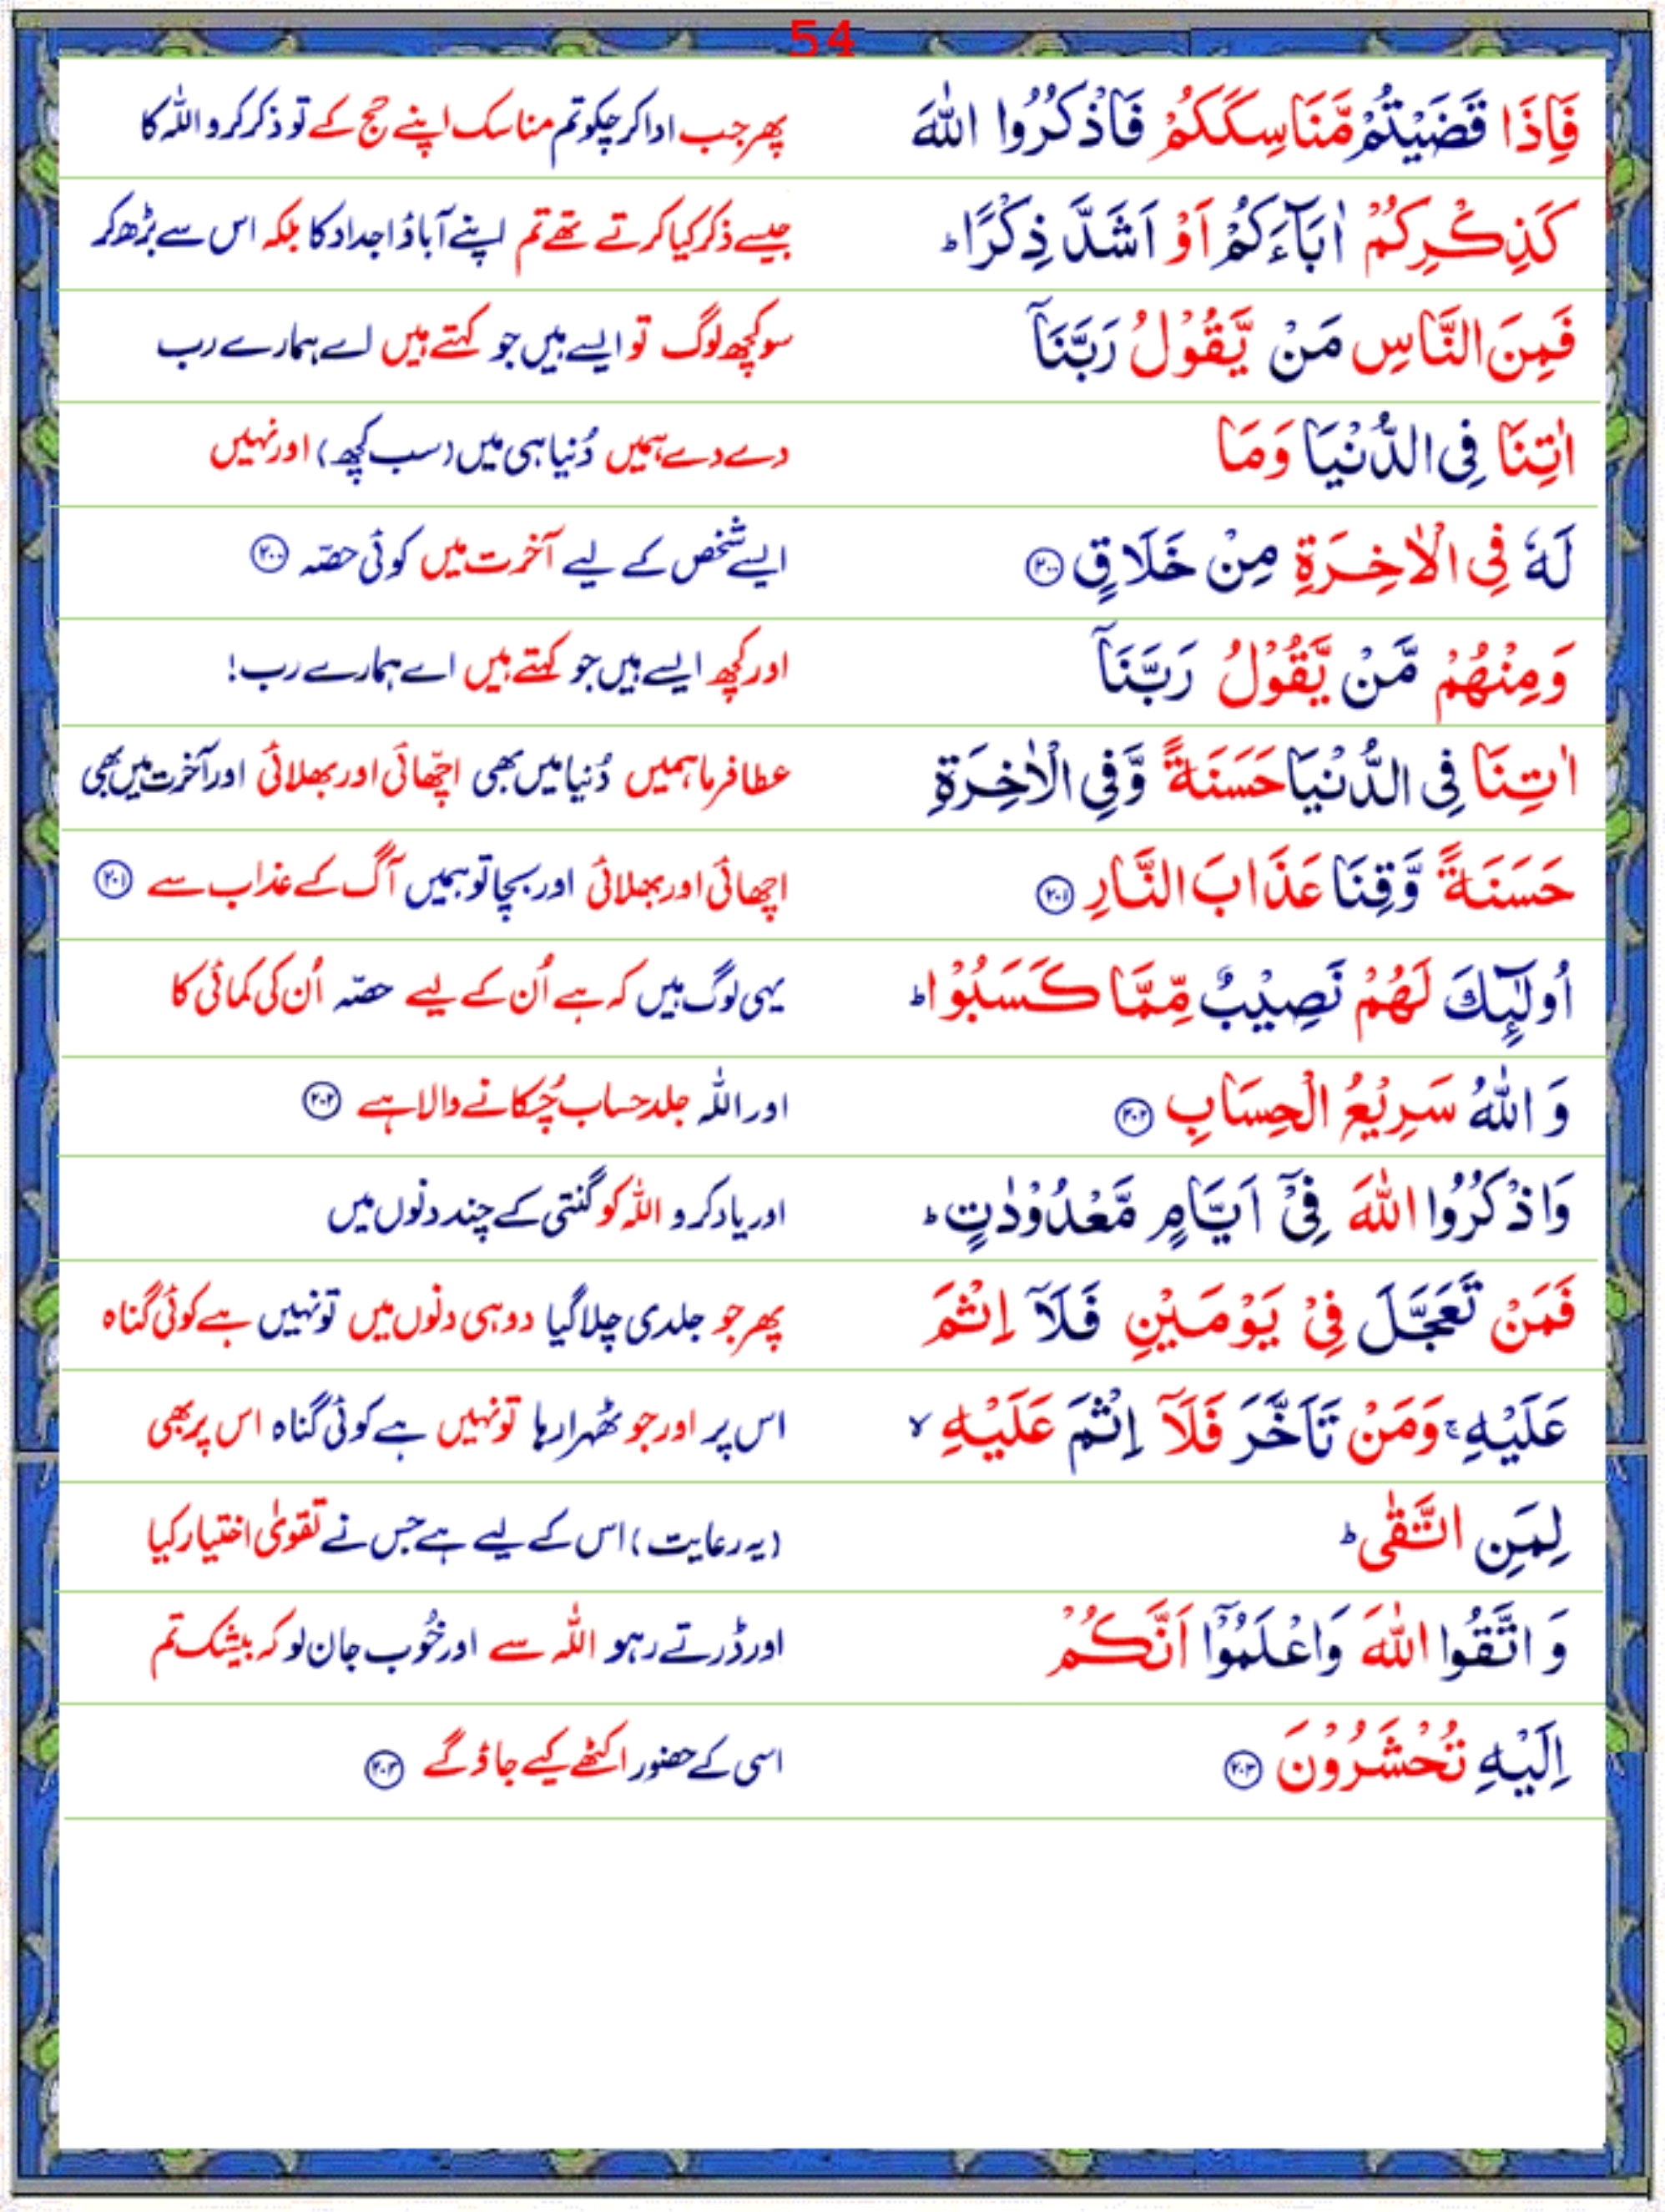 54
فَاِذَا قَضَيْتُمْ مَّنَاسِكَكُمْ فَاذْكُرُوا اللّٰهَ پھر جب ادا کر چکو تم مناسک اپنے حج کے تو ذکر کرو اللہ کا
كَذِكْرِكُمْ اٰبَآءَكُمْ اَوْ اَشَدَّ ذِكْرًا ؕ جیسے ذکر کیا کرتے تھے تم اپنے آباؤ اجداد کا بلکہ اس سے بڑھ کر
فَمِنَ النَّاسِ مَنْ يَّقُوْلُ رَبَّنَاۤ سو کچھ لوگ تو ایسے ہیں جو کہتے ہیں اے ہمارے رب
اٰتِنَا فِى الدُّنْيَا وَمَا دے دے ہمیں دُنیا ہی میں (سب کچھ) اور نہیں
لَهٗ فِى الْاٰخِرَةِ مِنْ خَلَاقٍ ۲۰۰ ایسے شخص کے لیے آخرت میں کوئی حصّہ ۲۰۰
وَمِنْهُمْ مَّنْ يَّقُوْلُ رَبَّنَاۤ اور کچھ ایسے ہیں جو کہتے ہیں اے ہمارے رب!
اٰتِنَا فِى الدُّنْيَا حَسَنَةً وَّفِى الْاٰخِرَةِ عطا فرما ہمیں دُنیا میں بھی اچّھائی اور بھلائی اور آخرت میں بھی
حَسَنَةً وَّقِنَا عَذَابَ النَّارِ ۲۰۱ اچھائی اور بھلائی اور بچا تو ہمیں آگ کے عذاب سے ۲۰۱
اُولٰٓئِكَ لَهُمْ نَصِيْبٌ مِّمَّا كَسَبُوْا ؕ یہی لوگ ہیں کہ ہے اُن کے لیے حصّہ اُن کی کمائی کا
وَ اللّٰهُ سَرِيْعُ الْحِسَابِ ۲۰۲ اور اللہ جلد حساب چُکانے والا ہے ۲۰۲
وَاذْكُرُوا اللّٰهَ فِىْۤ اَيَّامٍ مَّعْدُوْدٰتٍ ؕ اور یاد کرو اللہ کو گنتی کے چند دنوں میں
فَمَنْ تَعَجَّلَ فِىْ يَوْمَيْنِ فَلَاۤ اِثْمَ پھر جو جلدی چلا گیا دو ہی دنوں میں تو نہیں ہے کوئی گناہ
عَلَيْهِ ۚ وَمَنْ تَاَخَّرَ فَلَاۤ اِثْمَ عَلَيْهِ ۙ اس پر اور جو ٹھہرا رہا تو نہیں ہے کوئی گناہ اس پر بھی
لِمَنِ اتَّقٰى ؕ (یہ رعایت) اس کے لیے ہے جس نے تقویٰ اختیار کیا
وَ اتَّقُوا اللّٰهَ وَاعْلَمُوْۤا اَنَّكُمْ اور ڈرتے رہو اللہ سے اور خُوب جان لو کہ بیشک تم
اِلَيْهِ تُحْشَرُوْنَ ۲۰۳ اسی کے حضور اکٹھے کیے جاؤ گے ۲۰۳